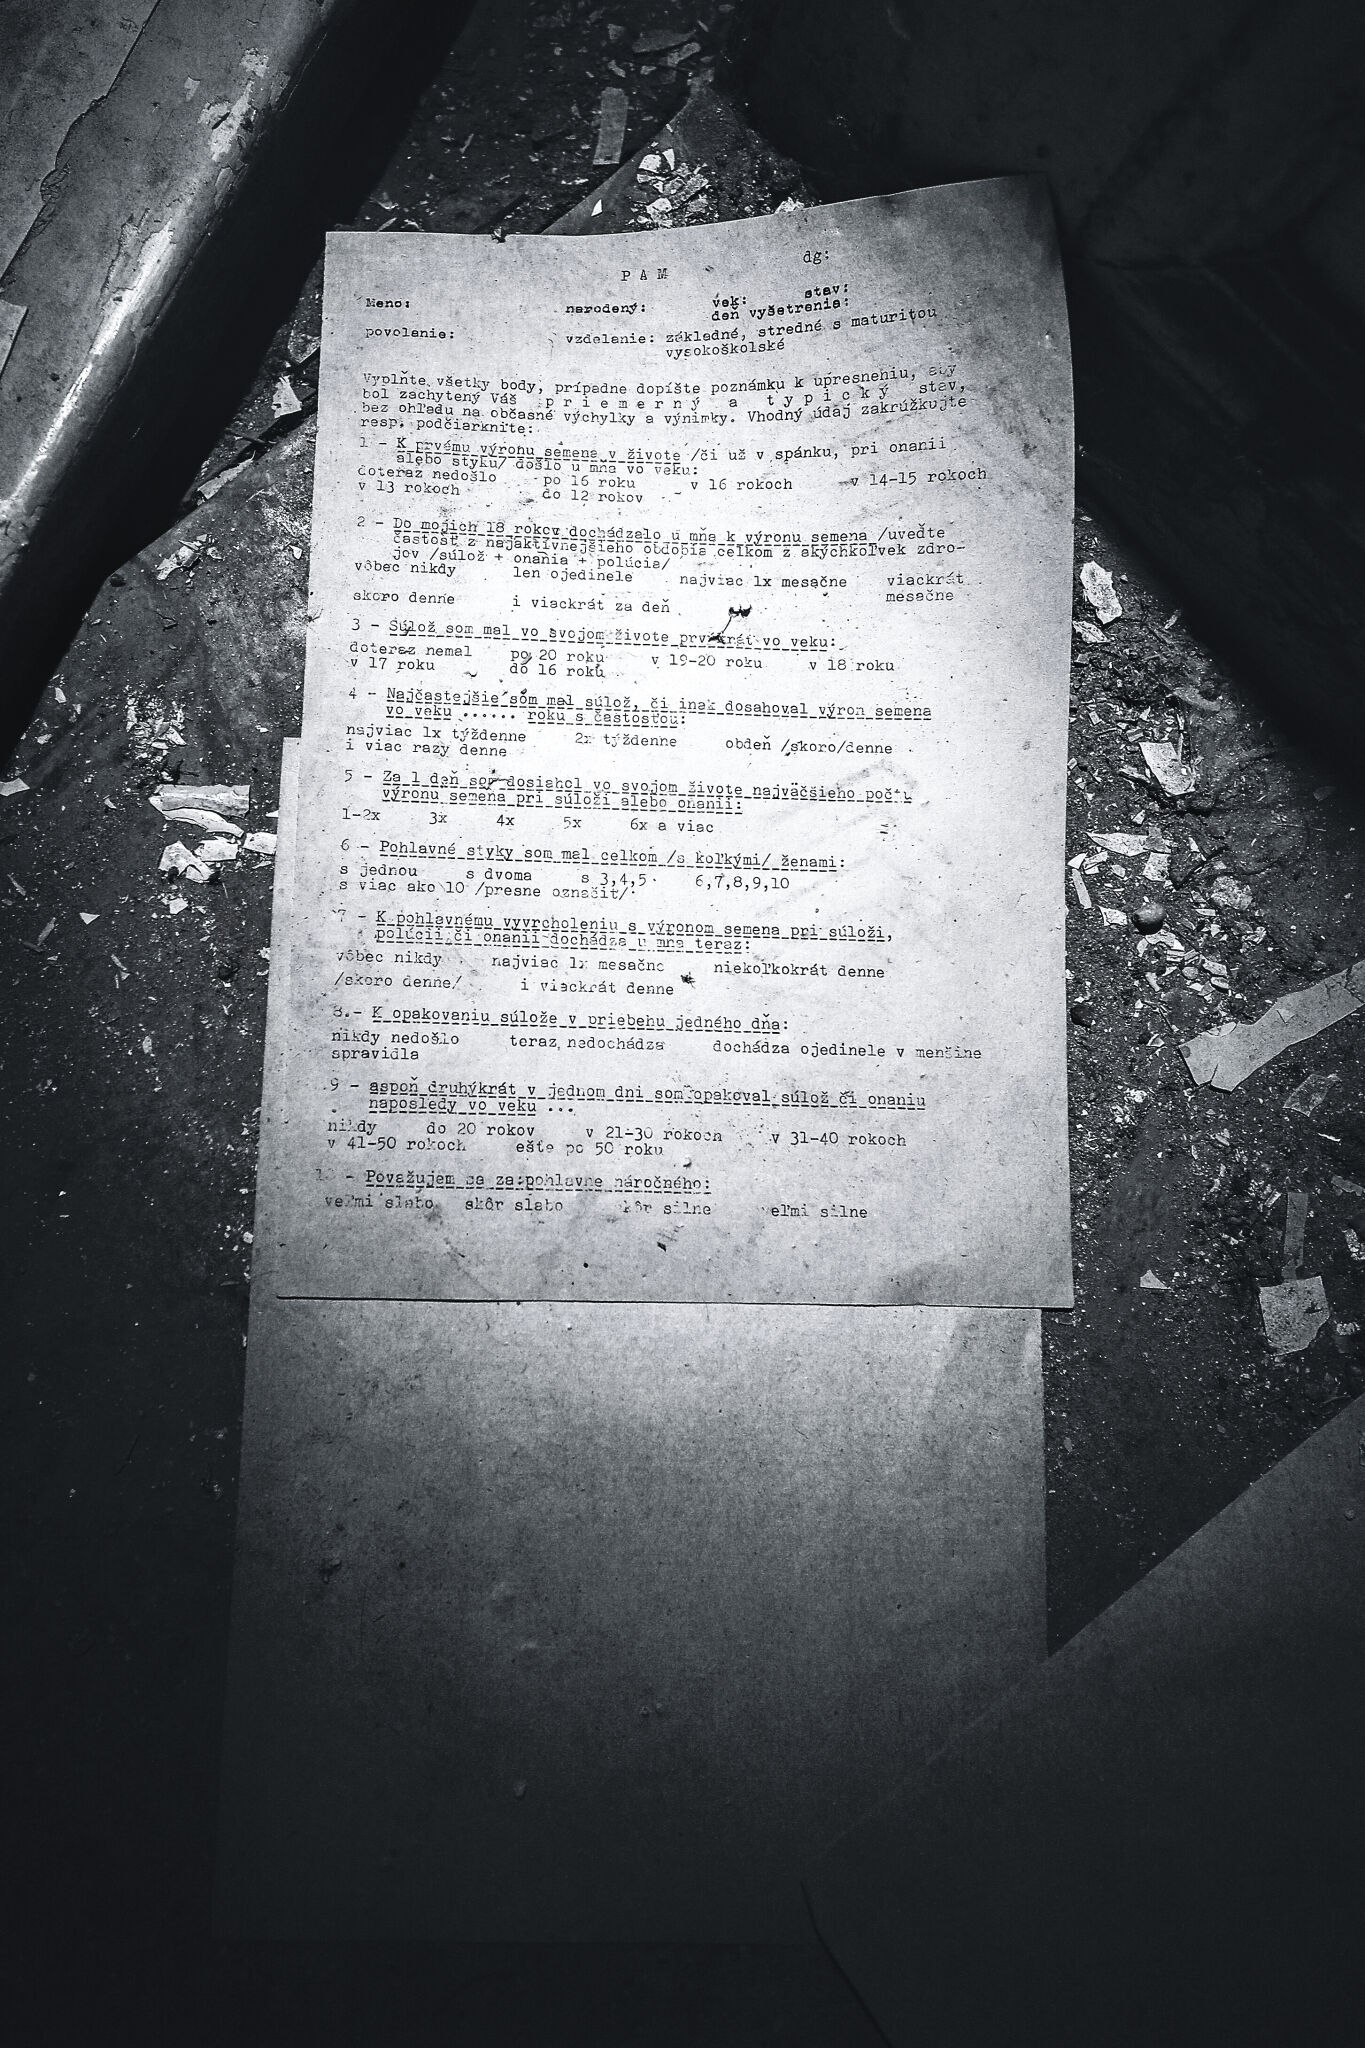 dg:
P A M
Meno: narodený: vek: stav:
deň vyšetrenia:
povolanie: vzdelanie: základné, stredné s maturitou
vysokoškolské
Vyplňte všetky body, prípadne dopíšte poznámku k upresnehiu, aby
bol zachytený Váš p r i e m e r n ý a t y p i c k ý stav,
bez ohľadu na občasné výchylky a výnimky. Vhodný údaj zakrúžkujte
resp. podčiarknite:
1 - K prvému výronu semena v živote /či už v spánku, pri onanii
alebo styku/ došlo u mňa vo veku:
doteraz nedošlo po 16 roku v 16 rokoch v 14-15 rokoch
v 13 rokoch do 12 rokov
2 - Do mojich 18 rokov dochádzalo u mňa k výronu semena /uveďte
častosť z najaktívnejšieho obdobia celkom z akýchkoľvek zdro-
jov /súlož + onania + polúcia/
vôbec nikdy len ojedinele najviac 1x mesačne viackrát
mesačne
skoro denne i viackrát za deň
3 - Súlož som mal vo svojom živote prvýkrát vo veku:
doteraz nemal po 20 roku v 19-20 roku v 18 roku
v 17 roku do 16 roku
4 - Najčastejšie som mal súlož, či inak dosahoval výron semena
vo veku ...... roku s častosťou:
najviac 1x týždenne 2x týždenne obdeň /skoro/denne
i viac razy denne
5 - Za 1 deň som dosiahol vo svojom živote najväčšieho počtu
výronu semena pri súloži alebo onanii:
1-2x 3x 4x 5x 6x a viac
6 - Pohlavné styky som mal celkom /s koľkými/ ženami:
s jednou s dvoma s 3,4,5 6,7,8,9,10
s viac ako 10 /presne označiť/
7 - K pohlavnému vyvrcholeniu s výronom semena pri súloži,
polúcii či onanii dochádza u mňa teraz:
vôbec nikdy najviac 1x mesačne niekoľkokrát denne
/skoro denne/ i viackrát denne
8.- K opakovaniu súlože v priebehu jedného dňa:
nikdy nedošlo teraz nedochádza dochádza ojedinele v menšine
spravidla
9 - aspoň druhýkrát v jednom dni som opakoval súlož či onaniu
naposledy vo veku ...
nikdy do 20 rokov v 21-30 rokoch v 31-40 rokoch
v 41-50 rokoch ešte po 50 roku
10 - Považujem sa za pohlavne náročného:
veľmi slabo skôr slabo skôr silne veľmi silne